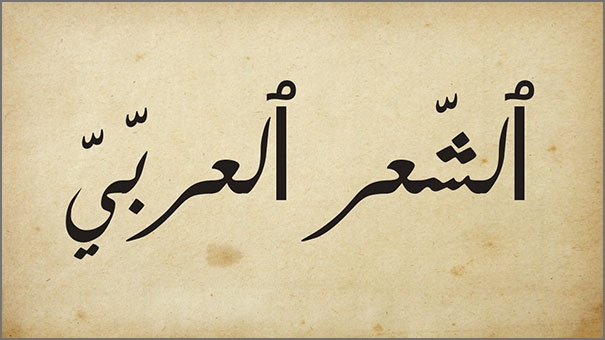 ٱلشّعر ٱلعربّيّ